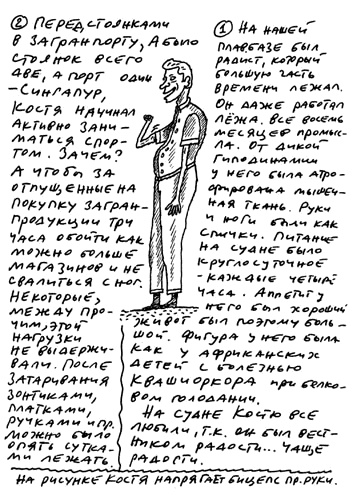 ① НА НАШЕЙ
ПЛАВБАЗЕ БЫЛ
РАДИСТ, КОТОРЫЙ
БОЛЬШУЮ ЧАСТЬ
ВРЕМЕНИ ЛЕЖАЛ.
ОН ДАЖЕ РАБОТАЛ
ЛЁЖА. ВСЕ ВОСЕМЬ
МЕСЯЦЕВ ПРОМЫС-
ЛА. ОТ ДИКОЙ
ГИПОДИНАМИИ
У НЕГО БЫЛА АТРО-
ФИРОВАНА МЫШЕЧ-
НАЯ ТКАНЬ. РУКИ
И НОГИ БЫЛИ КАК
СПИЧКИ. ПИТАНИЕ
НА СУДНЕ БЫЛО
КРУГЛОСУТОЧНОЕ
-КАЖДЫЕ ЧЕТЫРЕ
ЧАСА. АППЕТИТ У
НЕГО БЫЛ ХОРОШИЙ
ЖИВОТ БЫЛ ПОЭТОМУ БОЛЬ-
ШОЙ. ФИГУРА У НЕГО БЫЛА
КАК У АФРИКАНСКИХ
ДЕТЕЙ С БОЛЕЗНЬЮ
КВАШИОРКОРА ПРИ БЕЛКО-
ВОМ ГОЛОДАНИИ.
НА СУДНЕ КОСТЮ ВСЕ
ЛЮБИЛИ, Т.К. ОН БЫЛ ВЕСТ-
НИКОМ РАДОСТИ... ЧАЩЕ
РАДОСТИ.
② ПЕРЕД СТОЯНКАМИ
В ЗАГРАНПОРТУ, А БЫЛО
СТОЯНОК ВСЕГО
ДВЕ, А ПОРТ ОДИН
-СИНГАПУР,
КОСТЯ НАЧИНАЛ
АКТИВНО ЗАНИ-
МАТЬСЯ СПОР-
ТОМ. ЗАЧЕМ?
А ЧТОБЫ ЗА
ОТПУЩЕННЫЕ НА
ПОКУПКУ ЗАГРАН-
ПРОДУКЦИИ ТРИ
ЧАСА ОБОЙТИ КАК
МОЖНО БОЛЬШЕ
МАГАЗИНОВ И НЕ
СВАЛИТЬСЯ С НОГ.
НЕКОТОРЫЕ,
МЕЖДУ ПРО-
ЧИМ, ЭТОЙ
НАГРУЗКИ
НЕ ВЫДЕРЖИ-
ВАЛИ. ПОСЛЕ
ЗАТАРИВАНИЯ
ЗОНТИКАМИ,
ПЛАТКАМИ,
РУЧКАМИ И ПР.
МОЖНО БЫЛО
ОПЯТЬ СУТКА-
МИ ЛЕЖАТЬ.
НА РИСУНКЕ КОСТЯ НАПРЯГАЕТ БИЦЕПС ПР. РУКИ.